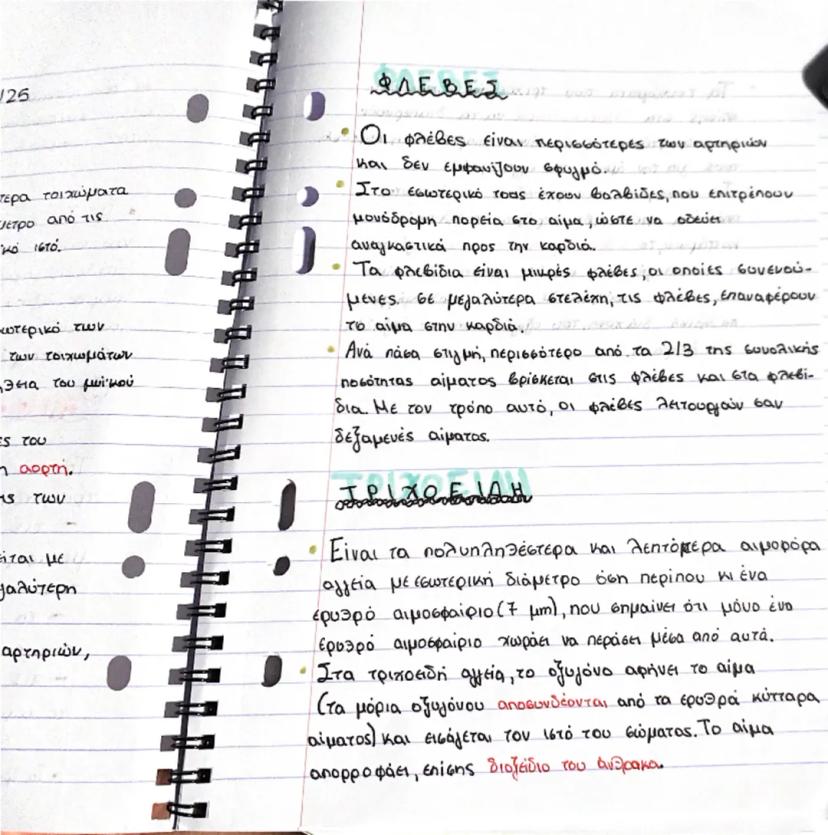 /25
τερα τοιχώματα
μετρο από τις
κό ιστό.
ωτερικό των
των τοιχωμάτων
ηθεια του μυϊκού
ες του
η αορτή.
ης των
είται με
γαλύτερη
αρτηριών,
ΦΛΕΒΕΣ
• Οι φλέβες είναι περισσότερες των αρτηριών
και δεν εμφανίζουν σφυγμό.
• Στο εσωτερικό τους έχουν βαλβίδες, που επιτρέπουν
μονόδρομη πορεία στο αίμα, ώστε να οδεύει
αναγκαστικά προς την καρδιά.
• Τα φλεβίδια είναι μικρές φλέβες, οι οποίες συνενού-
μενες σε μεγαλύτερα στελέχη, τις φλέβες, επαναφέρουν
το αίμα στην καρδιά.
• Ανά πάσα στιγμή, περισσότερο από τα 2/3 της συνολικής
ποσότητας αίματος βρίσκεται στις φλέβες και στα φλεβί-
δια. Με τον τρόπο αυτό, οι φλέβες λειτουργούν σαν
δεξαμενές αίματος.
ΤΡΙΧΟΕΙΔΗ
• Είναι τα πολυπληθέστερα και λεπτότερα αιμοφόρα
αγγεία με εσωτερική διάμετρο όση περίπου κι ένα
ερυθρό αιμοσφαίριο (7 μm), που σημαίνει ότι μόνο ένα
ερυθρό αιμοσφαίριο χωράει να περάσει μέσα από αυτά.
• Στα τριχοειδή αγγεία, το οξυγόνο αφήνει το αίμα
(τα μόρια οξυγόνου αποσυνδέονται από τα ερυθρά κύτταρα
αίματος) και εισάγεται τον ιστό του σώματος. Το αίμα
απορροφάει, επίσης διοξείδιο του άνθρακα.